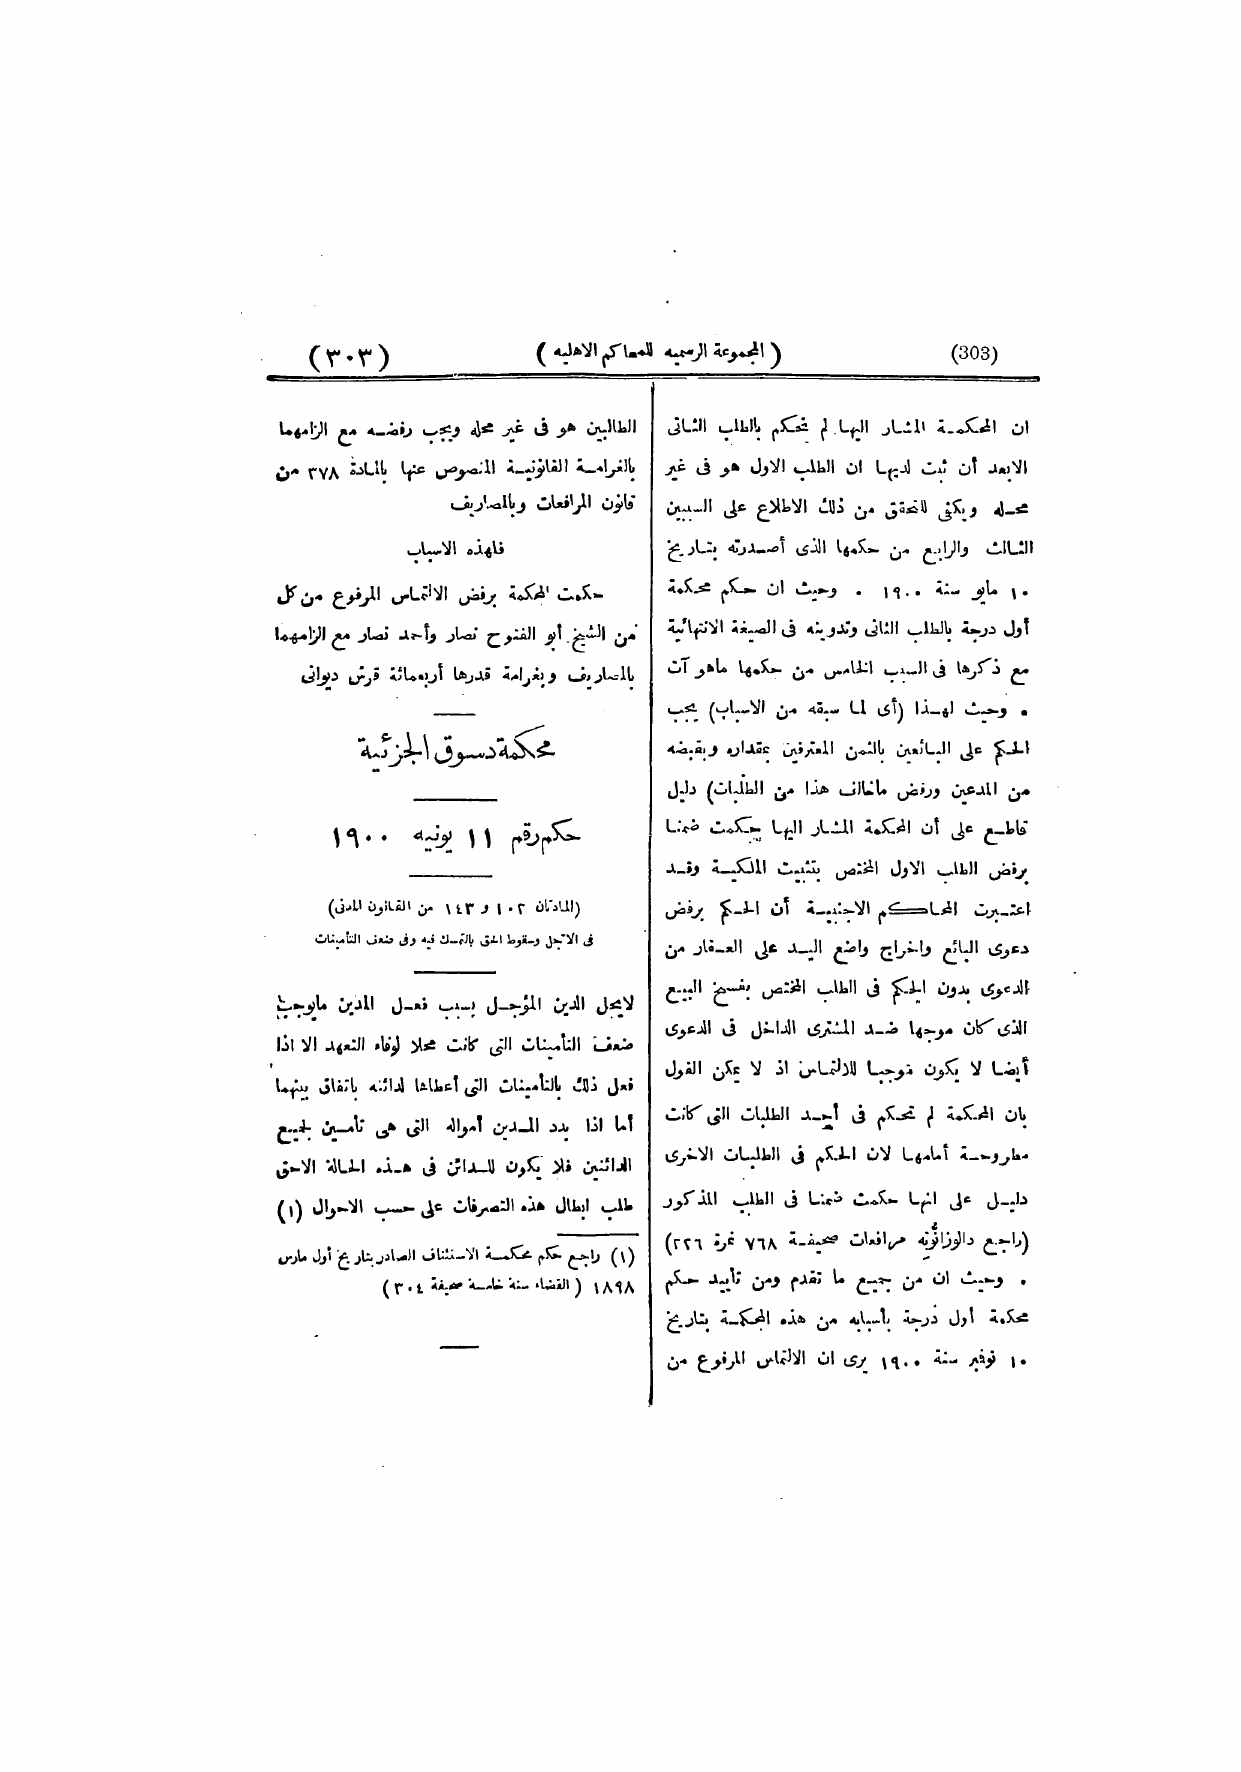 (303)
( المجموعة الرسمية للمحاكم الاهليه )
(٣٠٣)
ان المحكمة المشار اليها لم تحكم بالطلب الثانى
الابعد أن ثبت لديها ان الطلب الاول هو فى غير
محله ويكفى للتحقق من ذلك الاطلاع على السببين
الثالث والرابع من حكمها الذى أصدرته بتاريخ
١٠ مايو سنة ١٩٠٠ . وحيث ان حكم محكمة
أول درجة بالطلب الثانى وتدوينه فى الصيغة الانتهائية
مع ذكرها فى السبب الخامس من حكمها ماهو آت
. وحيث لهذا (أى لما سبقه من الاسباب) يجب
الحكم على البائعين بالثمن المعترفين بمقداره وبقبضه
من المدعين ورفض ماخالف هذا من الطلبات) دليل
قاطع على أن المحكمة المشار اليها حكمت ضمنا
برفض الطلب الاول المختص بتثبيت الملكية وقد
اعتبرت المحاكم الاجنبية أن الحكم برفض
دعوى البائع واخراج واضع اليد على العقار من
الدعوى بدون الحكم فى الطلب المختص بفسخ البيع
الذى كان موجها ضد المشترى الداخل فى الدعوى
أيضا لا يكون موجبا للالتماس اذ لا يمكن القول
بان المحكمة لم تحكم فى أحد الطلبات التى كانت
مطروحة أمامها لان الحكم فى الطلبات الاخرى
دليل على انها حكمت ضمنا فى الطلب المذكور
(راجع دالوزانُّونه مرافعات صحيفة ٧٦٨ نمرة ٢٢٦)
. وحيث ان من جميع ما تقدم ومن تأييد حكم
محكمة أول درجة بأسبابه من هذه المحكمة بتاريخ
١٠ نوفبر سنة ١٩٠٠ يرى ان الالتماس المرفوع من
الطالبين هو فى غير محله ويجب رفضه مع الزامهما
بالغرامة القانونية المنصوص عنها بالمادة ٣٧٨ من
قانون المرافعات وبالمصاريف
فلهذه الاسباب
حكمت المحكمة برفض الالتماس المرفوع من كل
من الشيخ أبو الفتوح نصار وأحمد نصار مع الزامهما
بالمصاريف وبغرامة قدرها أربعمائة قرش ديوانى
محكمة دسوق الجزئية
حكم رقم ١١ يونيه ١٩٠٠
(المادتان ١٠٢ و ١٤٣ من القانون المدنى)
فى الاجل وسقوط الحق بالتمسك فيه وفى ضعف التأمينات
لايحل الدين المؤجل بسبب فعل المدين مايوجب
ضعف التأمينات التى كانت محلا لوفاء التعهد الا اذا
فعل ذلك بالتأمينات التى أعطاها لدائنه باتفاق بينهما
أما اذا بدد المدين أمواله التى هى تأمين لجميع
الدائنين فلا يكون للدائن فى هذه الحالة الاحق
طلب ابطال هذه التصرفات على حسب الاحوال (١)
(١) راجع حكم محكمة الاستئناف الصادر بتاريخ أول مارس
١٨٩٨ ( القضاء سنة خامسة صحيفة ٣٠٤ )